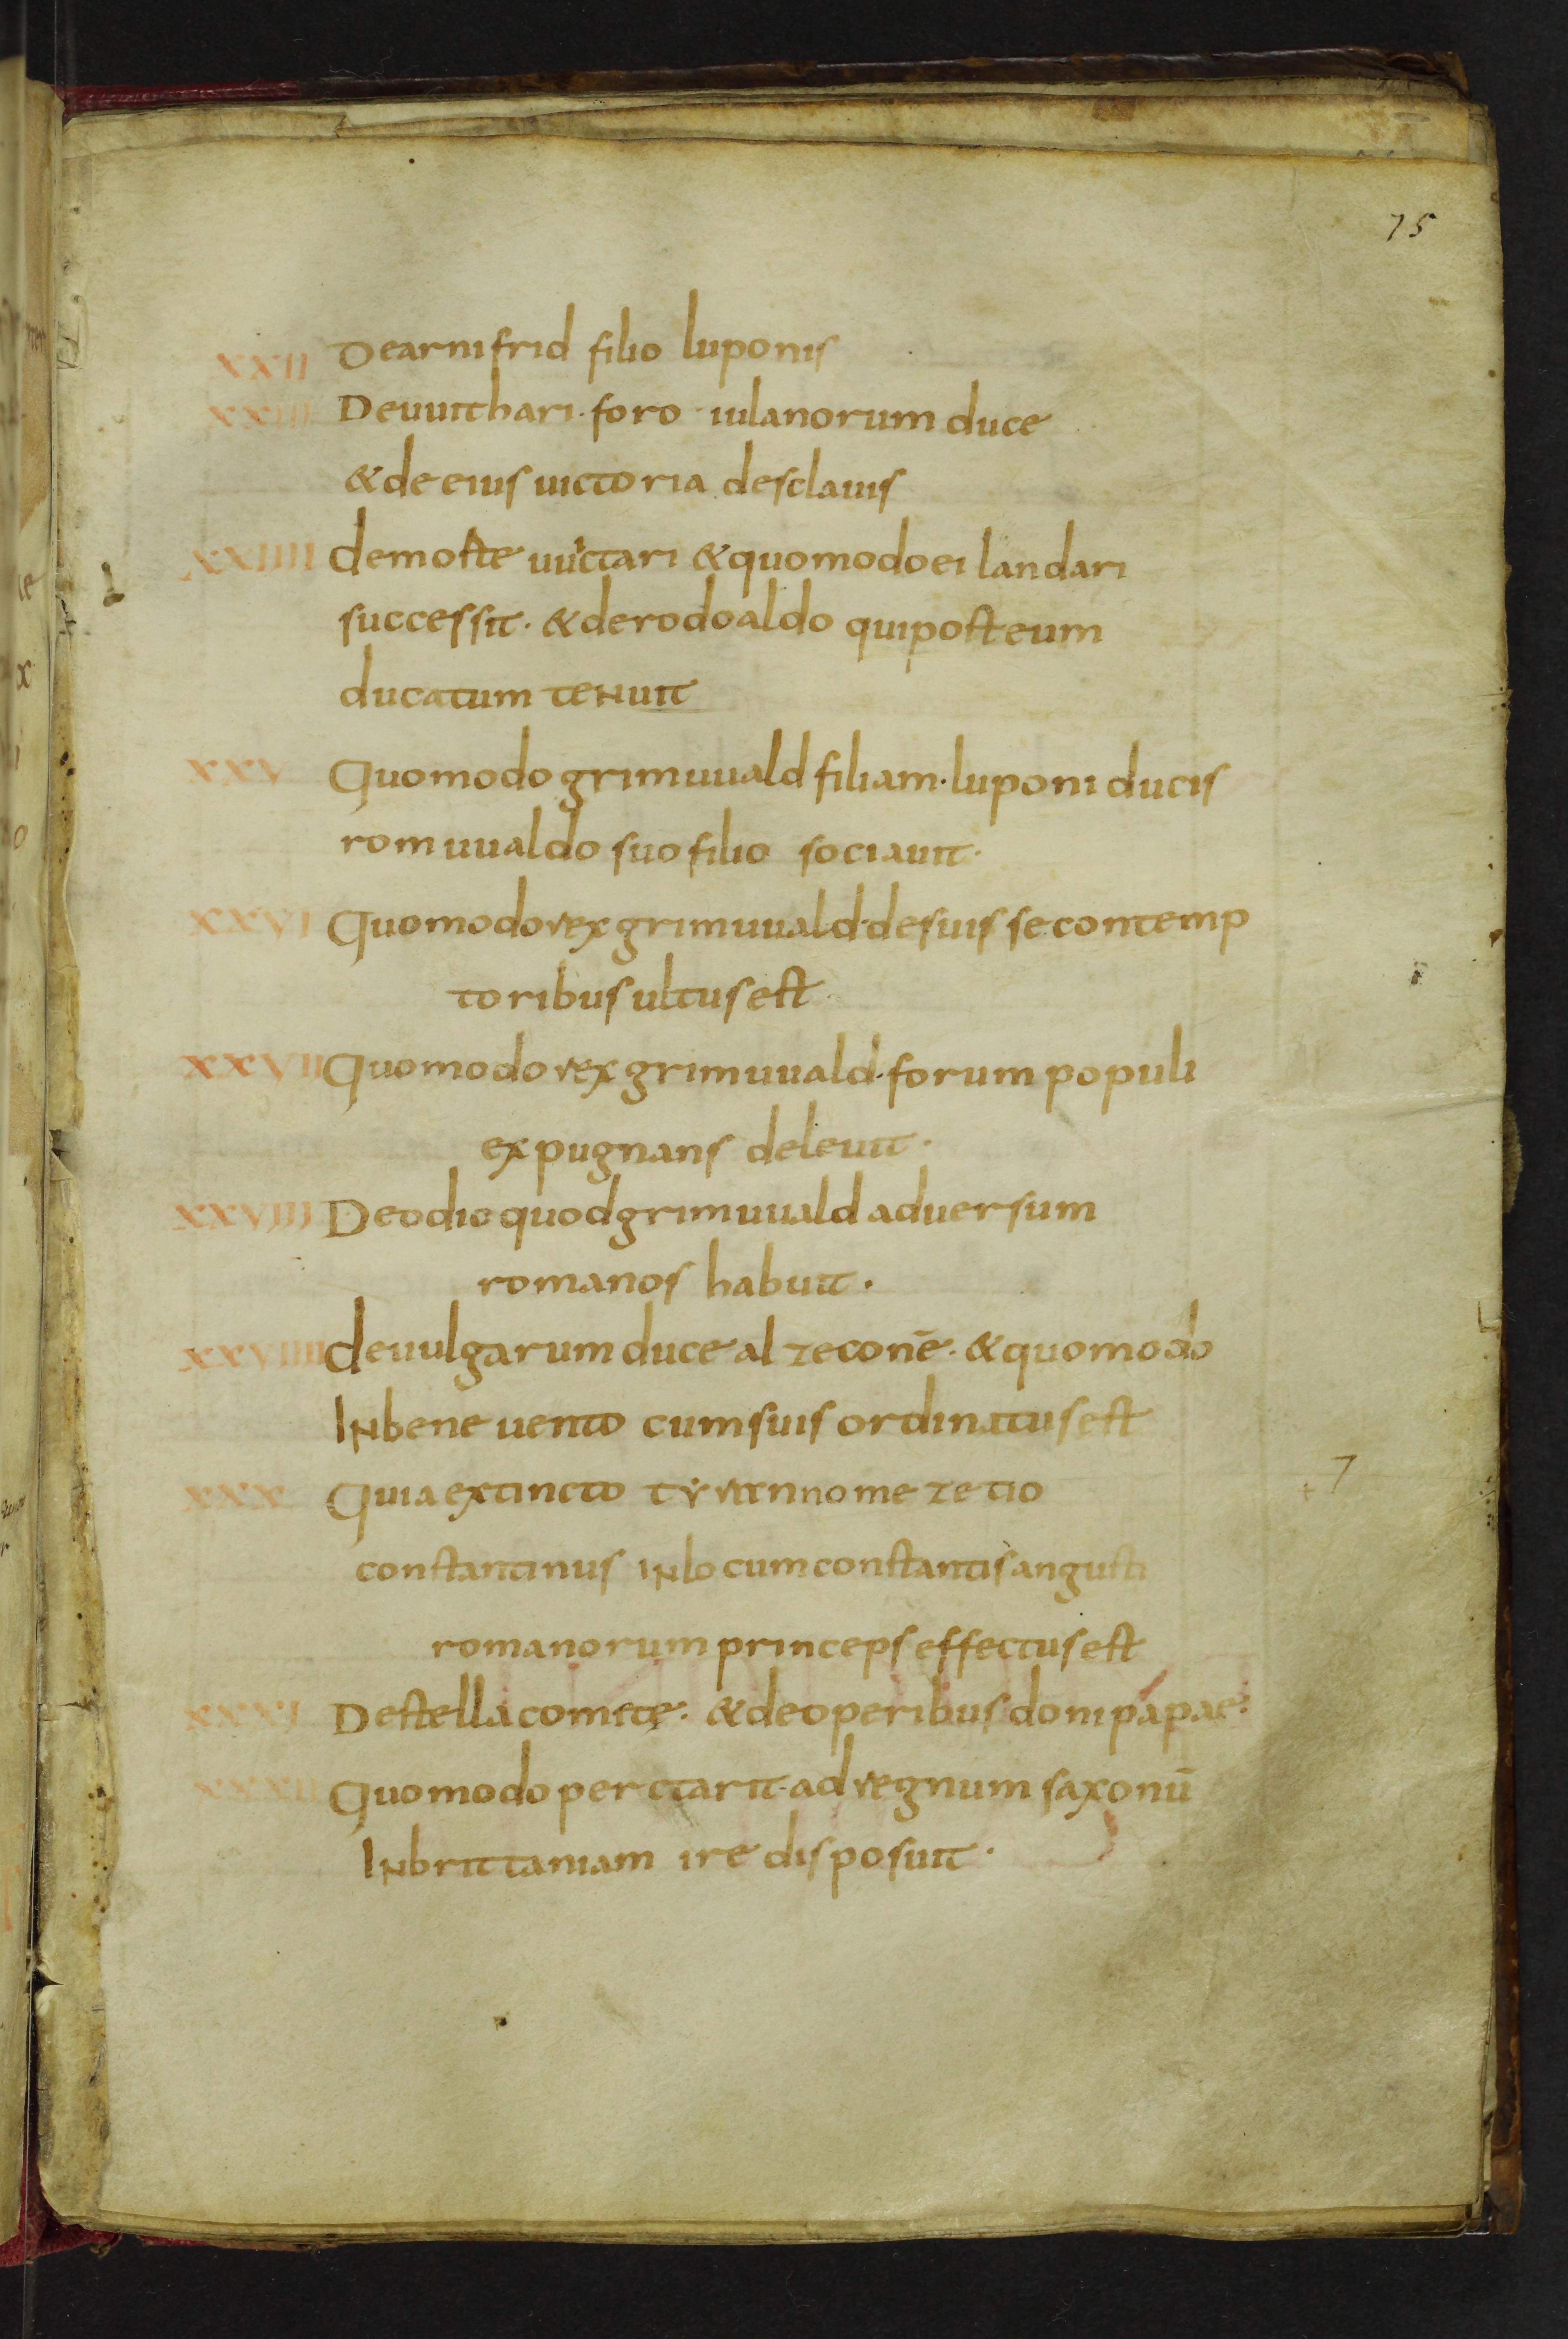 75
XXII De arnifrid filio luponis
XXIII De uuithari. foro iulanorum duce
& de eius uictoria de sclauis
XXIIII de morte uuictari & quomodo ei landari
successit. & de rodoaldo qui post eum
ducatum tenuit
XXV Quomodo grimuuald filiam. luponi ducis
romuualdo suo filio sociauit.
XXVI Quomodo rex grimuuald. de suis se contemp
toribus ultus est
XXVII Quomodo rex grimuuald. forum populi
expugnans deleuit.
XXVIII De odio quod grimuuald aduersum
romanos habuit.
XXVIIII de uulgarum duce alzeconē. & quomodo
In beneuento cum suis ordinatus est
XXX Quia extincto tyrannno mezetio
constantinus In locum constantis angusti
romanorum princeps effectus est
XXXI De stella comete. & de operibus doni papae.
XXXII Quomodo perctarit. ad regnum saxonū
In brittaniam ire disposuit.